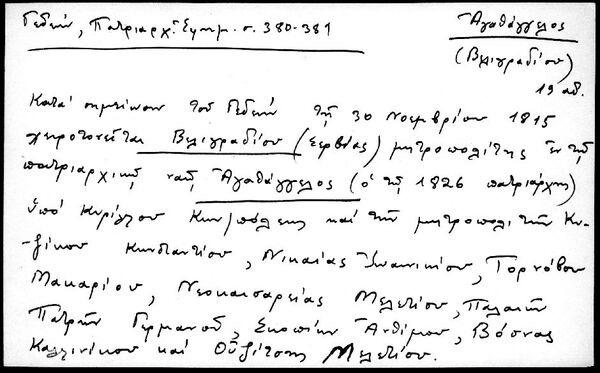 Γεδεών, Πατριαρχ. Εφημ. σ. 380-381
Ἀγαθάγγελος
(Βελιγραδίου)
19 αἰ.
Κατά σημείωσιν τοῦ Γεδεών τῇ 30 Νοεμβρίου 1815
χειροτονεῖται Βελιγραδίου (Σερβίας) μητροπολίτης ἐν τῷ
πατριαρχικῷ ναῷ Ἀγαθάγγελος (ὁ τῷ 1826 πατριάρχης)
ὑπό Κυρίλλου Κων/πόλεως καί τῶν μητροπολιτῶν Κυ-
-ζίκου Κωνσταντίου, Νικαίας Ἰωαννικίου, Τορνόβου
Μακαρίου, Νεοκαισαρείας Μελετίου, Παλαιῶν
Πατρῶν Γερμανοῦ, Σκοπίων Ἀνθίμου, Βόσνας
Καλλινίκου καί Οὐζίτσης Μελετίου.